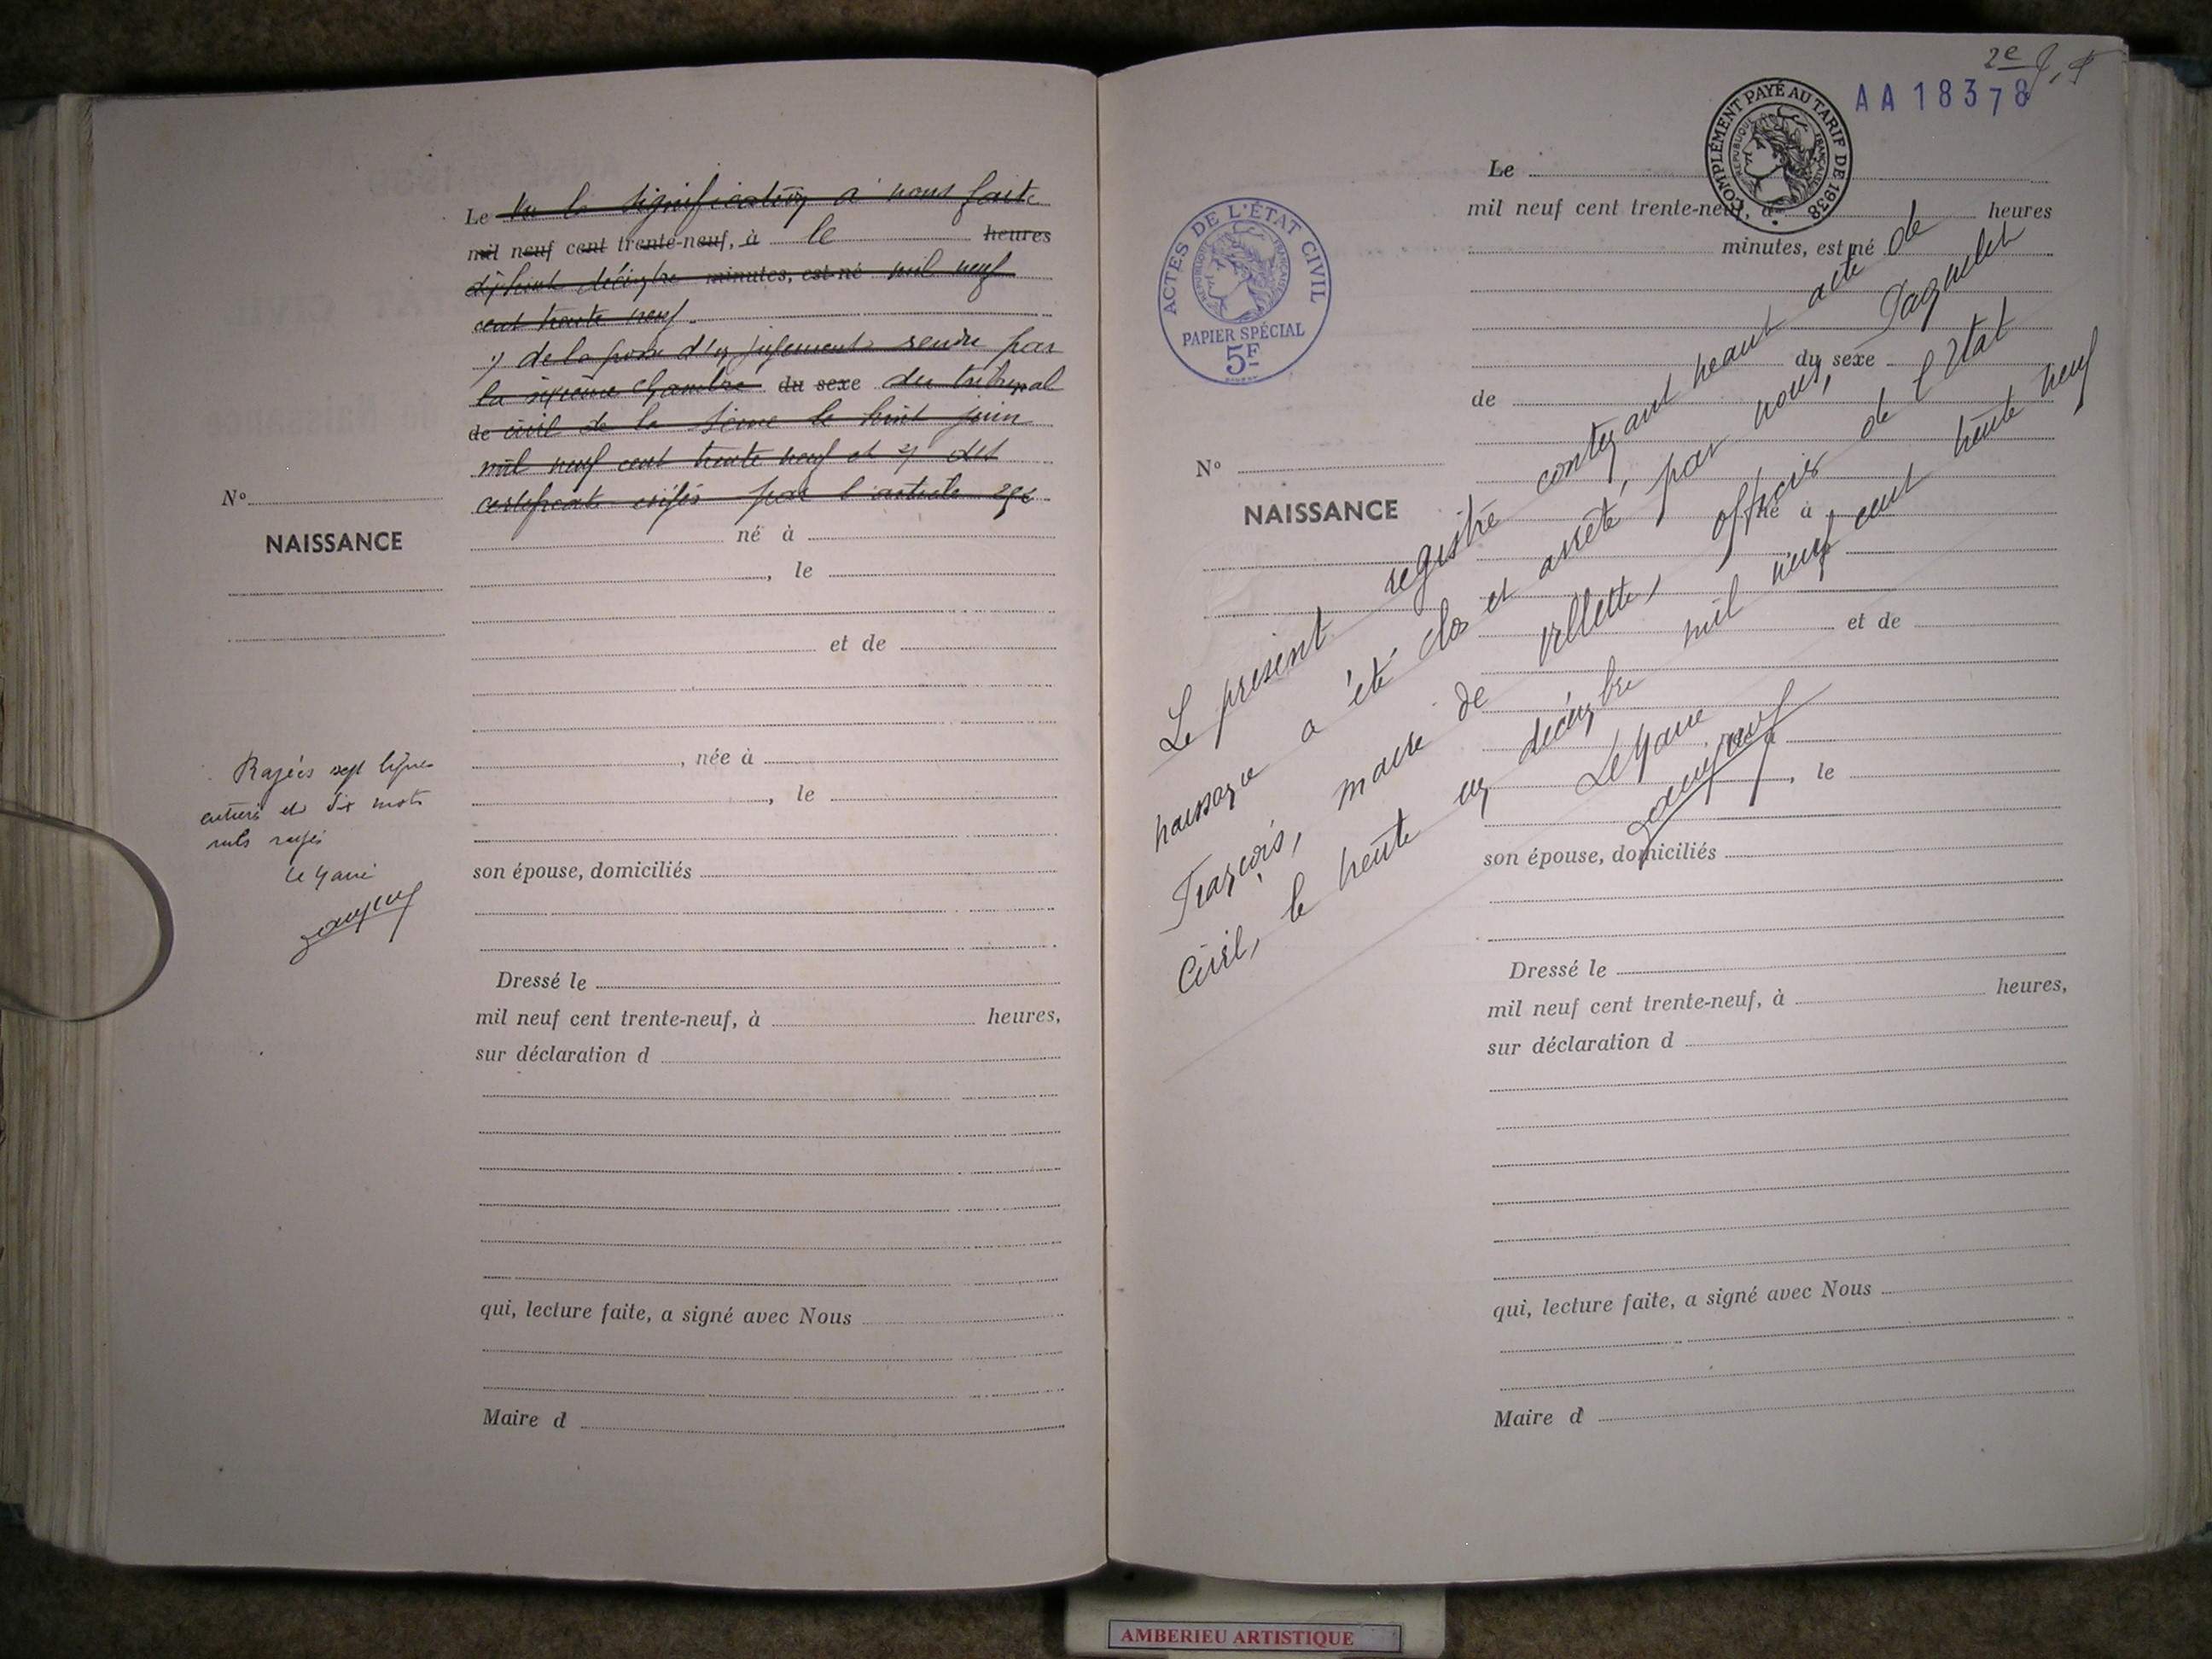 Le Vu la signification à nous faite
mil neuf cent trente-neuf, à le heures
dixhuit décembre minutes, est né mil neuf
cent trente neuf
1) de la grosse d'un jugement rendu par
la sixième chambre du sexe du tribunal
de civil de la Seine le huit juin
mil neuf cent trente neuf et 2) des
certificats exigés par l'article
N°
NAISSANCE
né à
, le
et de
Rayés sept lignes
entières et dix mots
nuls rayés
Le Maire
, née à
, le
son épouse, domiciliés
Dressé le
mil neuf cent trente-neuf, à heures,
sur déclaration d
qui, lecture faite, a signé avec Nous
Maire d
2e
AA 18378
COMPLÉMENT PAYÉ AU TARIF DE 1938
RÉPUBLIQUE FRANÇAISE
ACTES DE L'ÉTAT CIVIL
RÉPUBLIQUE FRANÇAISE
PAPIER SPÉCIAL
5F
Le
mil neuf cent trente-neuf, à heures
minutes, est né
du sexe
de
N°
NAISSANCE
né à
et de
Le présent registre contenant acte de
naissance a été clos et arrêté, par nous,
François, maire de Villette, officier de l'Etat
Civil, le trente un décembre mil neuf cent trente neuf
Le Maire
, le
son épouse, domiciliés
Dressé le
mil neuf cent trente-neuf, à heures,
sur déclaration d
qui, lecture faite, a signé avec Nous
Maire d
AMBERIEU ARTISTIQUE